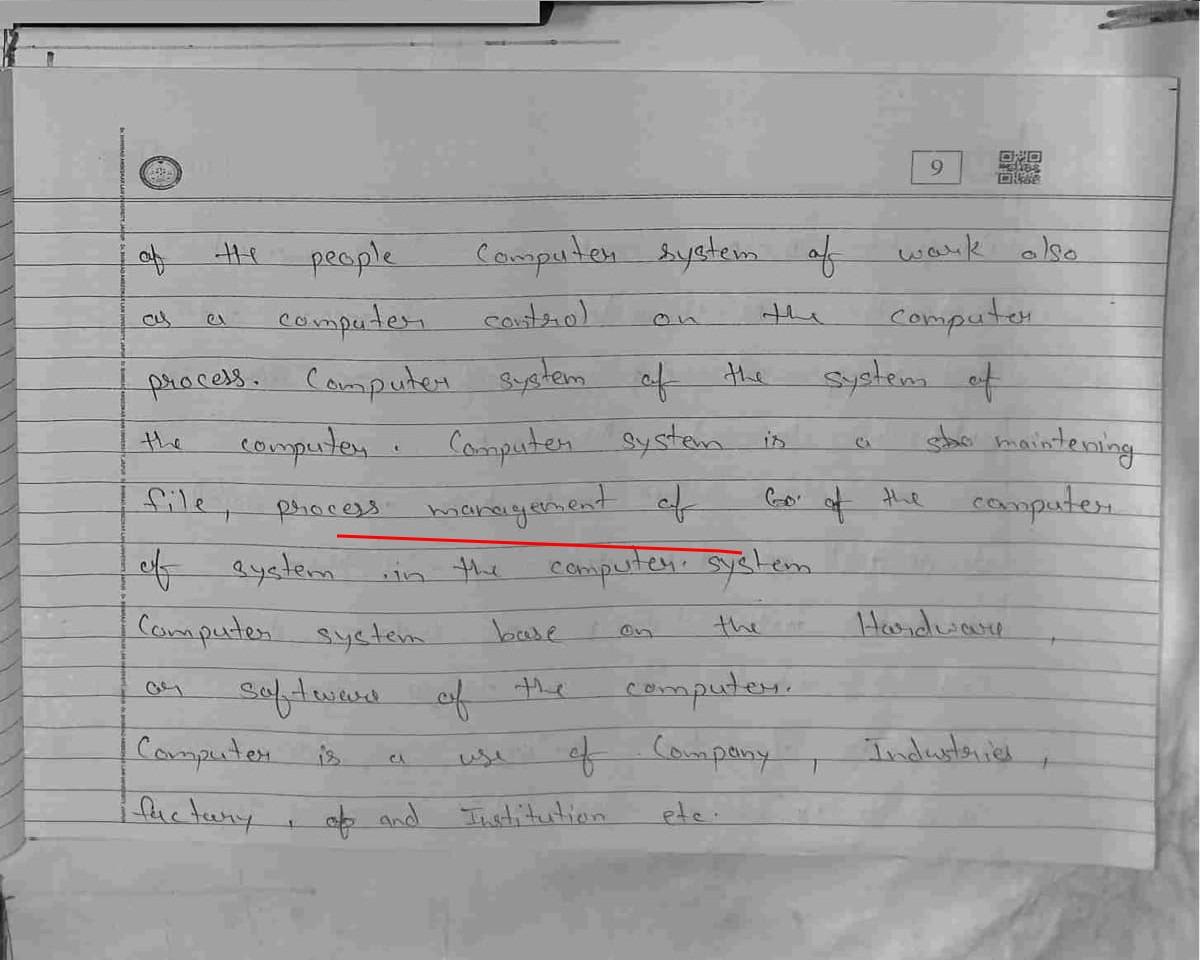 9
of the people Computer system of work also
as a computer control on the computer
process. Computer system of the system of
the computer. Computer system is a maintening
file, process management of of the computer
of system .in the computer. system
Computer system base on the Hardware,
or software of the computer.
Computer is a use of Company, Industries,
factory, and Institution etc.